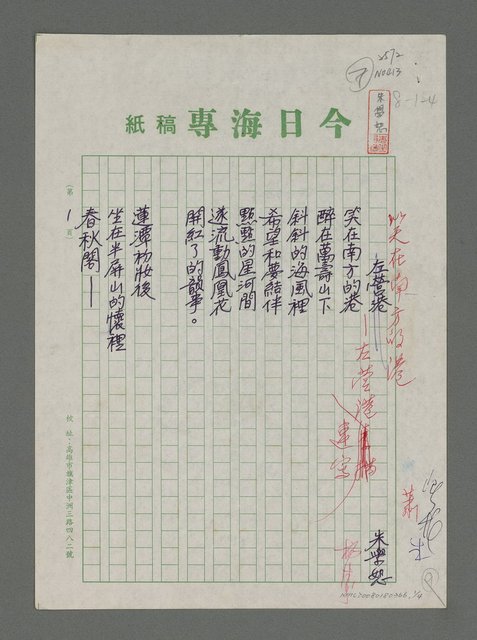 2572
NO813
8-1-4
今日海專稿紙
笑在南方的港
——左營港
連寫
左營港——
朱學恕
笑在南方的港
醉在萬壽山下
斜斜的海風裡
希望和夢結伴
點點的星河間
遂流動鳳凰花
開紅了的韻事。
蓮潭初妝後
坐在半屏山的懷裡
春秋閣——
(第1頁)
校址：高雄市旗津區中洲三路四八二號